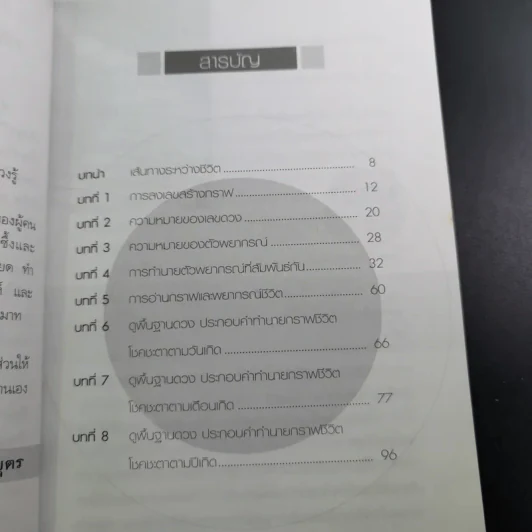 สารบัญ
บทนำ เส้นทางระหว่างชีวิต 8
บทที่ 1 การลงเลขสร้างกราฟ 12
บทที่ 2 ความหมายของเลขดวง 20
บทที่ 3 ความหมายของตัวพยากรณ์ 28
บทที่ 4 การทำนายตัวพยากรณ์ที่สัมพันธ์กัน 32
บทที่ 5 การอ่านกราฟและพยากรณ์ชีวิต 60
บทที่ 6 ดูพื้นฐานดวง ประกอบคำทำนายกราฟชีวิต
โชคชะตาตามวันเกิด 66
บทที่ 7 ดูพื้นฐานดวง ประกอบคำทำนายกราฟชีวิต
โชคชะตาตามเดือนเกิด 77
บทที่ 8 ดูพื้นฐานดวง ประกอบคำทำนายกราฟชีวิต
โชคชะตาตามปีเกิด 96